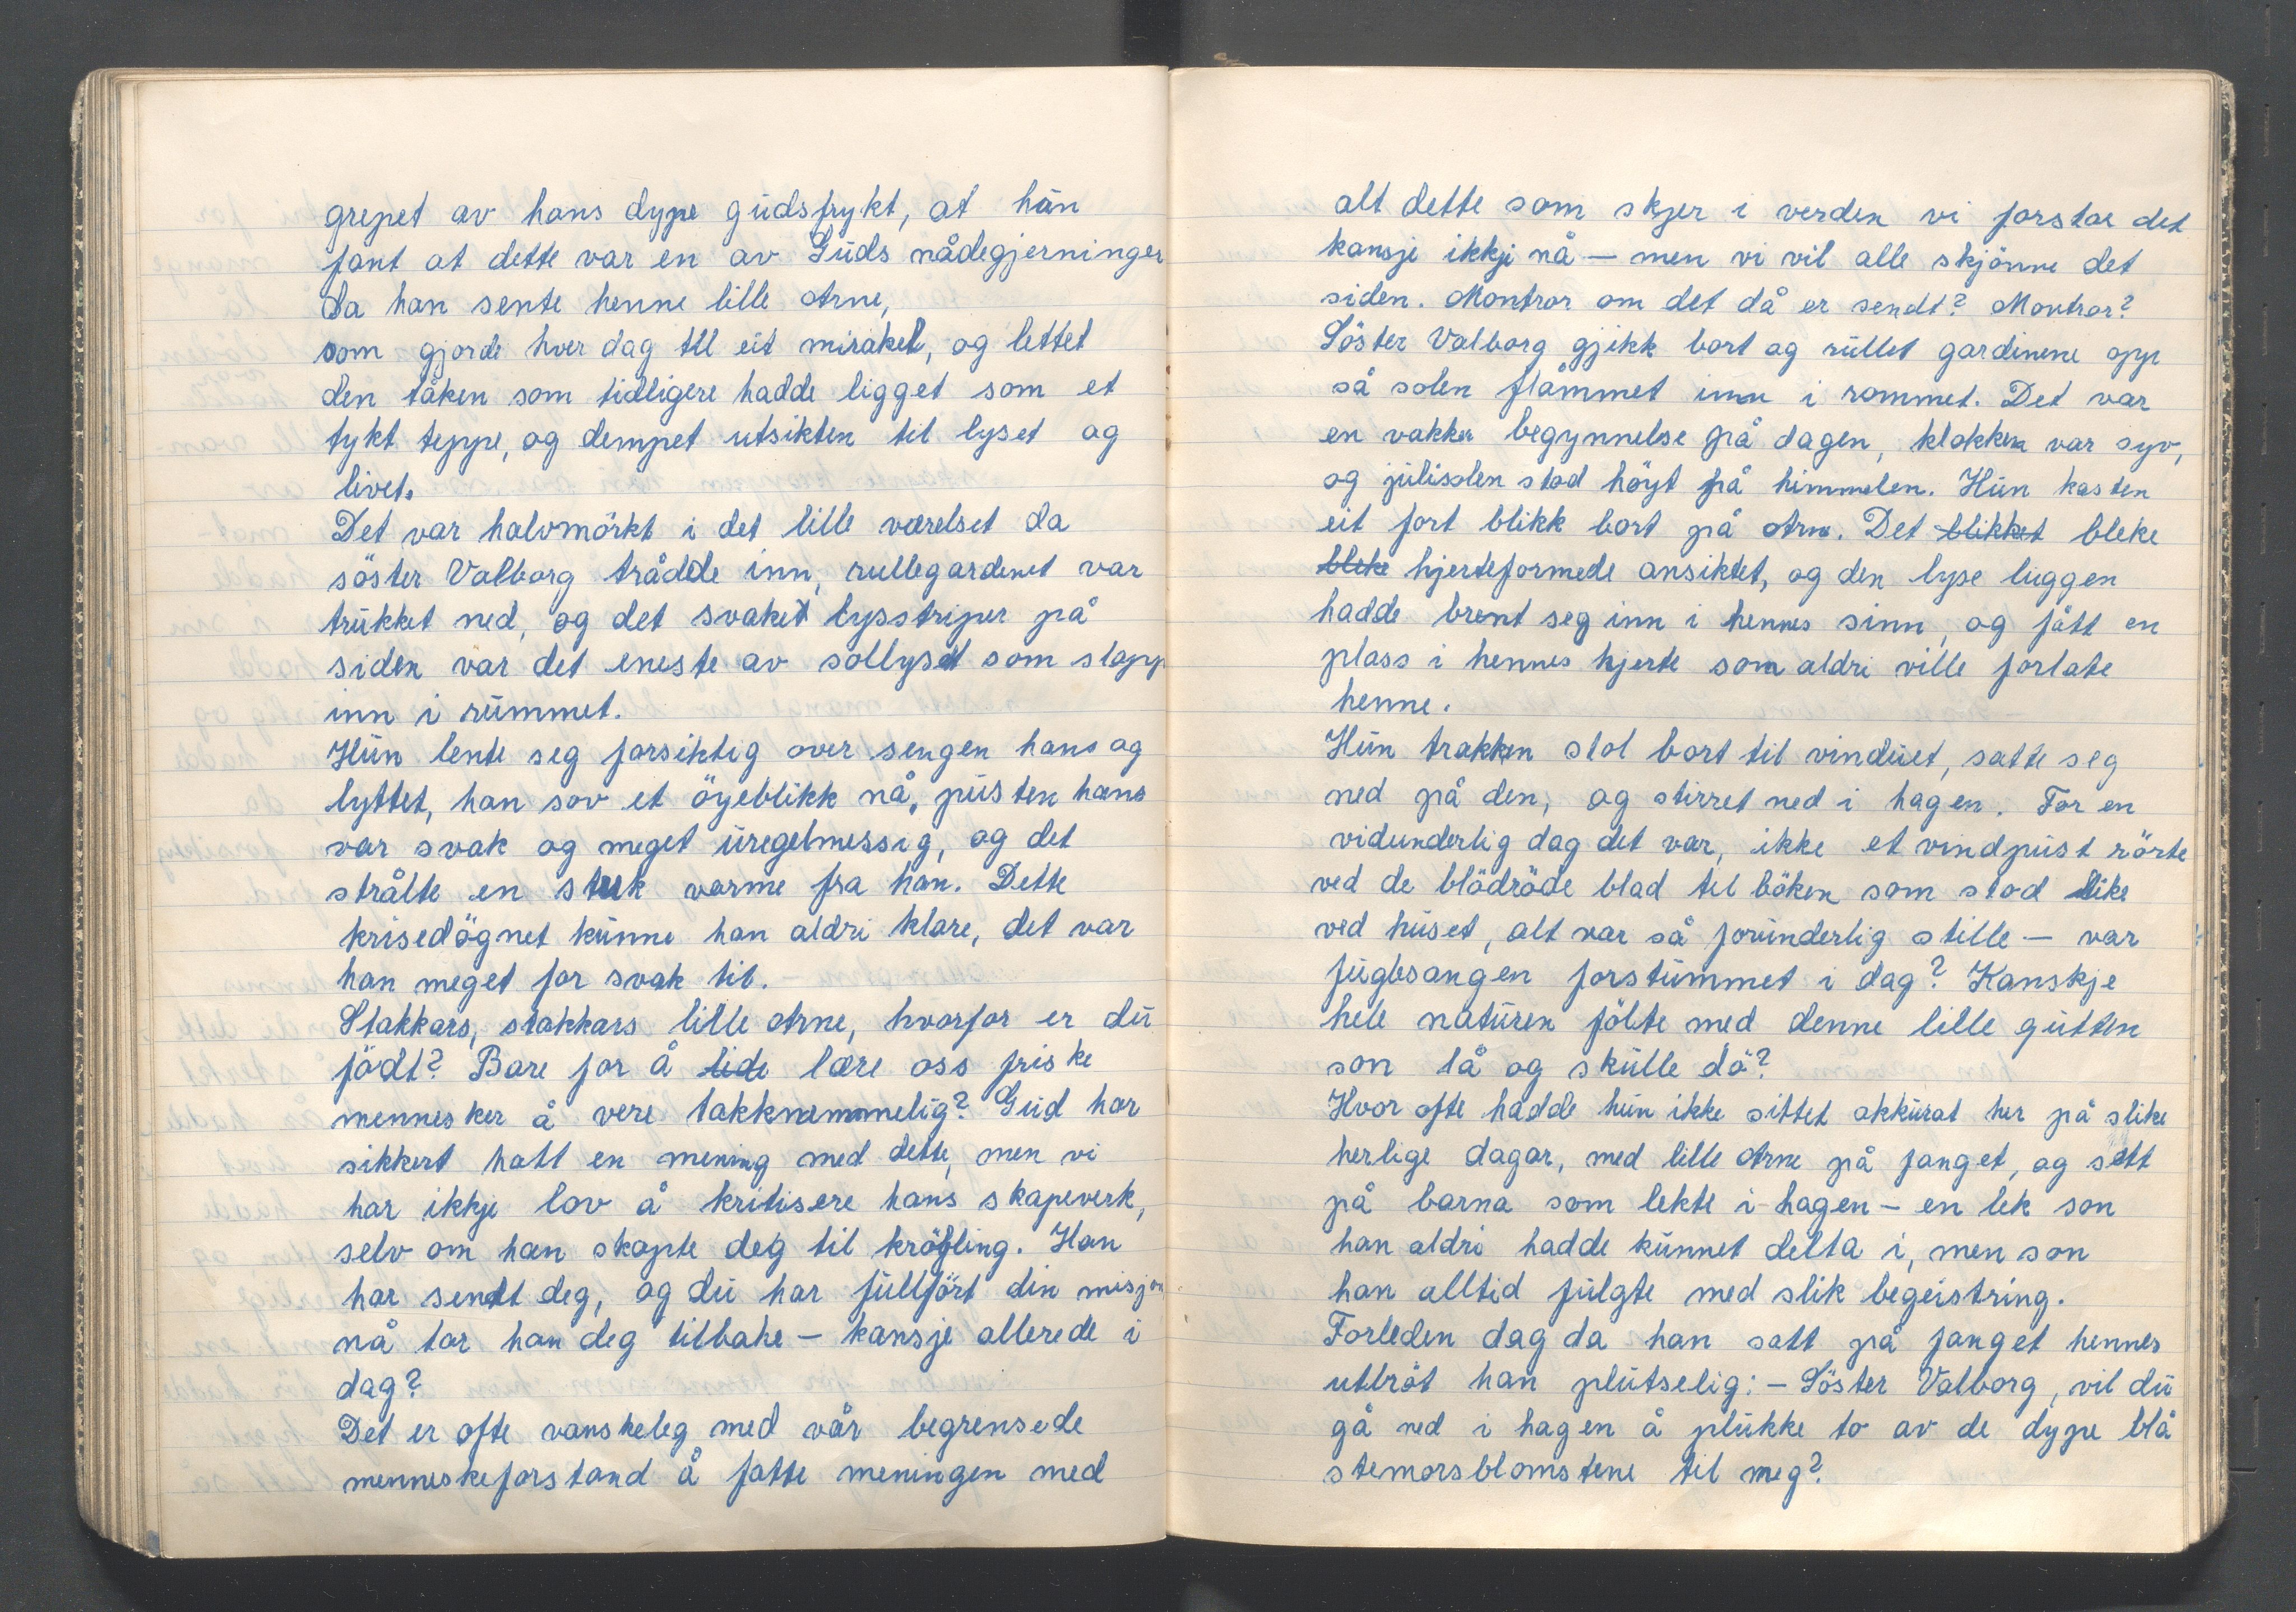 grepet av hans dype gudsfrykt, at hun
fant at dette var en av Guds nådegjerninger
da han sente henne lille Arne,
som gjorde hver dag tll eit mirakel, og lettet
den tåken som tidligere hadde ligget som et
tykt teppe, og dempet utsikten til lyset og
livet.
Det var halvmörkt i det lille værelset da
söster Valborg trådde inn, rullegardenet var
trukket ned, og det svaket lysstriper på
siden var det eneste av sollyset som slapp
inn i rummet.
Hun lente seg forsiktig over sengen hans og
lyttet, han sov et öyeblikk nå, pusten hans
var svak og meget uregelmessig, og det
strålte en sterk varme fra han. Dette
krisedögnet kunne han aldri klare, det var
han meget for svak til.
Stakkars, stakkars lille Arne, hvorfor er du
födt? Bare for å lide lære oss friske
mennesker å vere takknemmelig? Gud har
sikkert hatt en mening med dette, men vi
har ikkje lov å kritisere hans skapeverk,
selv om han skapte deg til kröpling. Han
har sendt deg, og du har fullfört din misjon
nå tar han deg tilbake – kansje allerede i
dag?
Det er ofte vanskeleg med vår begrensede
menneskeforstand å fatte meningen med
alt dette som skjer i verden vi forstår det
kansje ikkje nå – men vi vil alle skjönne det
siden. Montror om det då er sendt? Montror?
Söster Valborg gjikk bort og rullet gardinene opp
så solen flåmmet inn i rommet. Det var
en vakker begynnelse på dagen, klokken var syv,
og julisolen stod höyt på himmelen. Hun kasten
eit fort blikk bort på Arne. Det blikket bleke
bleke hjerteformede ansiktet, og den lyse luggen
hadde brent seg inn i hennes sinn, og fått en
plass i hennes hjerte som aldri ville forlate
henne.
Hun trakken stol bort til vinduet, satte seg
ned på den, og stirret ned i hagen. For en
vidunderlig dag det var, ikke et vindpust rörte
ved de blödröde blad til böken som stod like
ved huset, alt var så forunderlig stille – var
fuglesangen forstummet i dag? Kanskje
hele naturen fölte med denne lille gutten
son lå og skulle dö?
Hvor ofte hadde hun ikke sittet akkurat her på slike
herlige dagar, med lille Arne på fanget, og sett
på barna som lekte i hagen – en lek son
han aldri hadde kunnet delta i, men son
han alltid fulgte med slik begeistring.
Forleden dag da han satt på fanget hennes
utbröt han plutselig: – Söster Valborg, vil du
gå ned i hagen å plukke to av de dype blå
stemorsblomstene til meg?